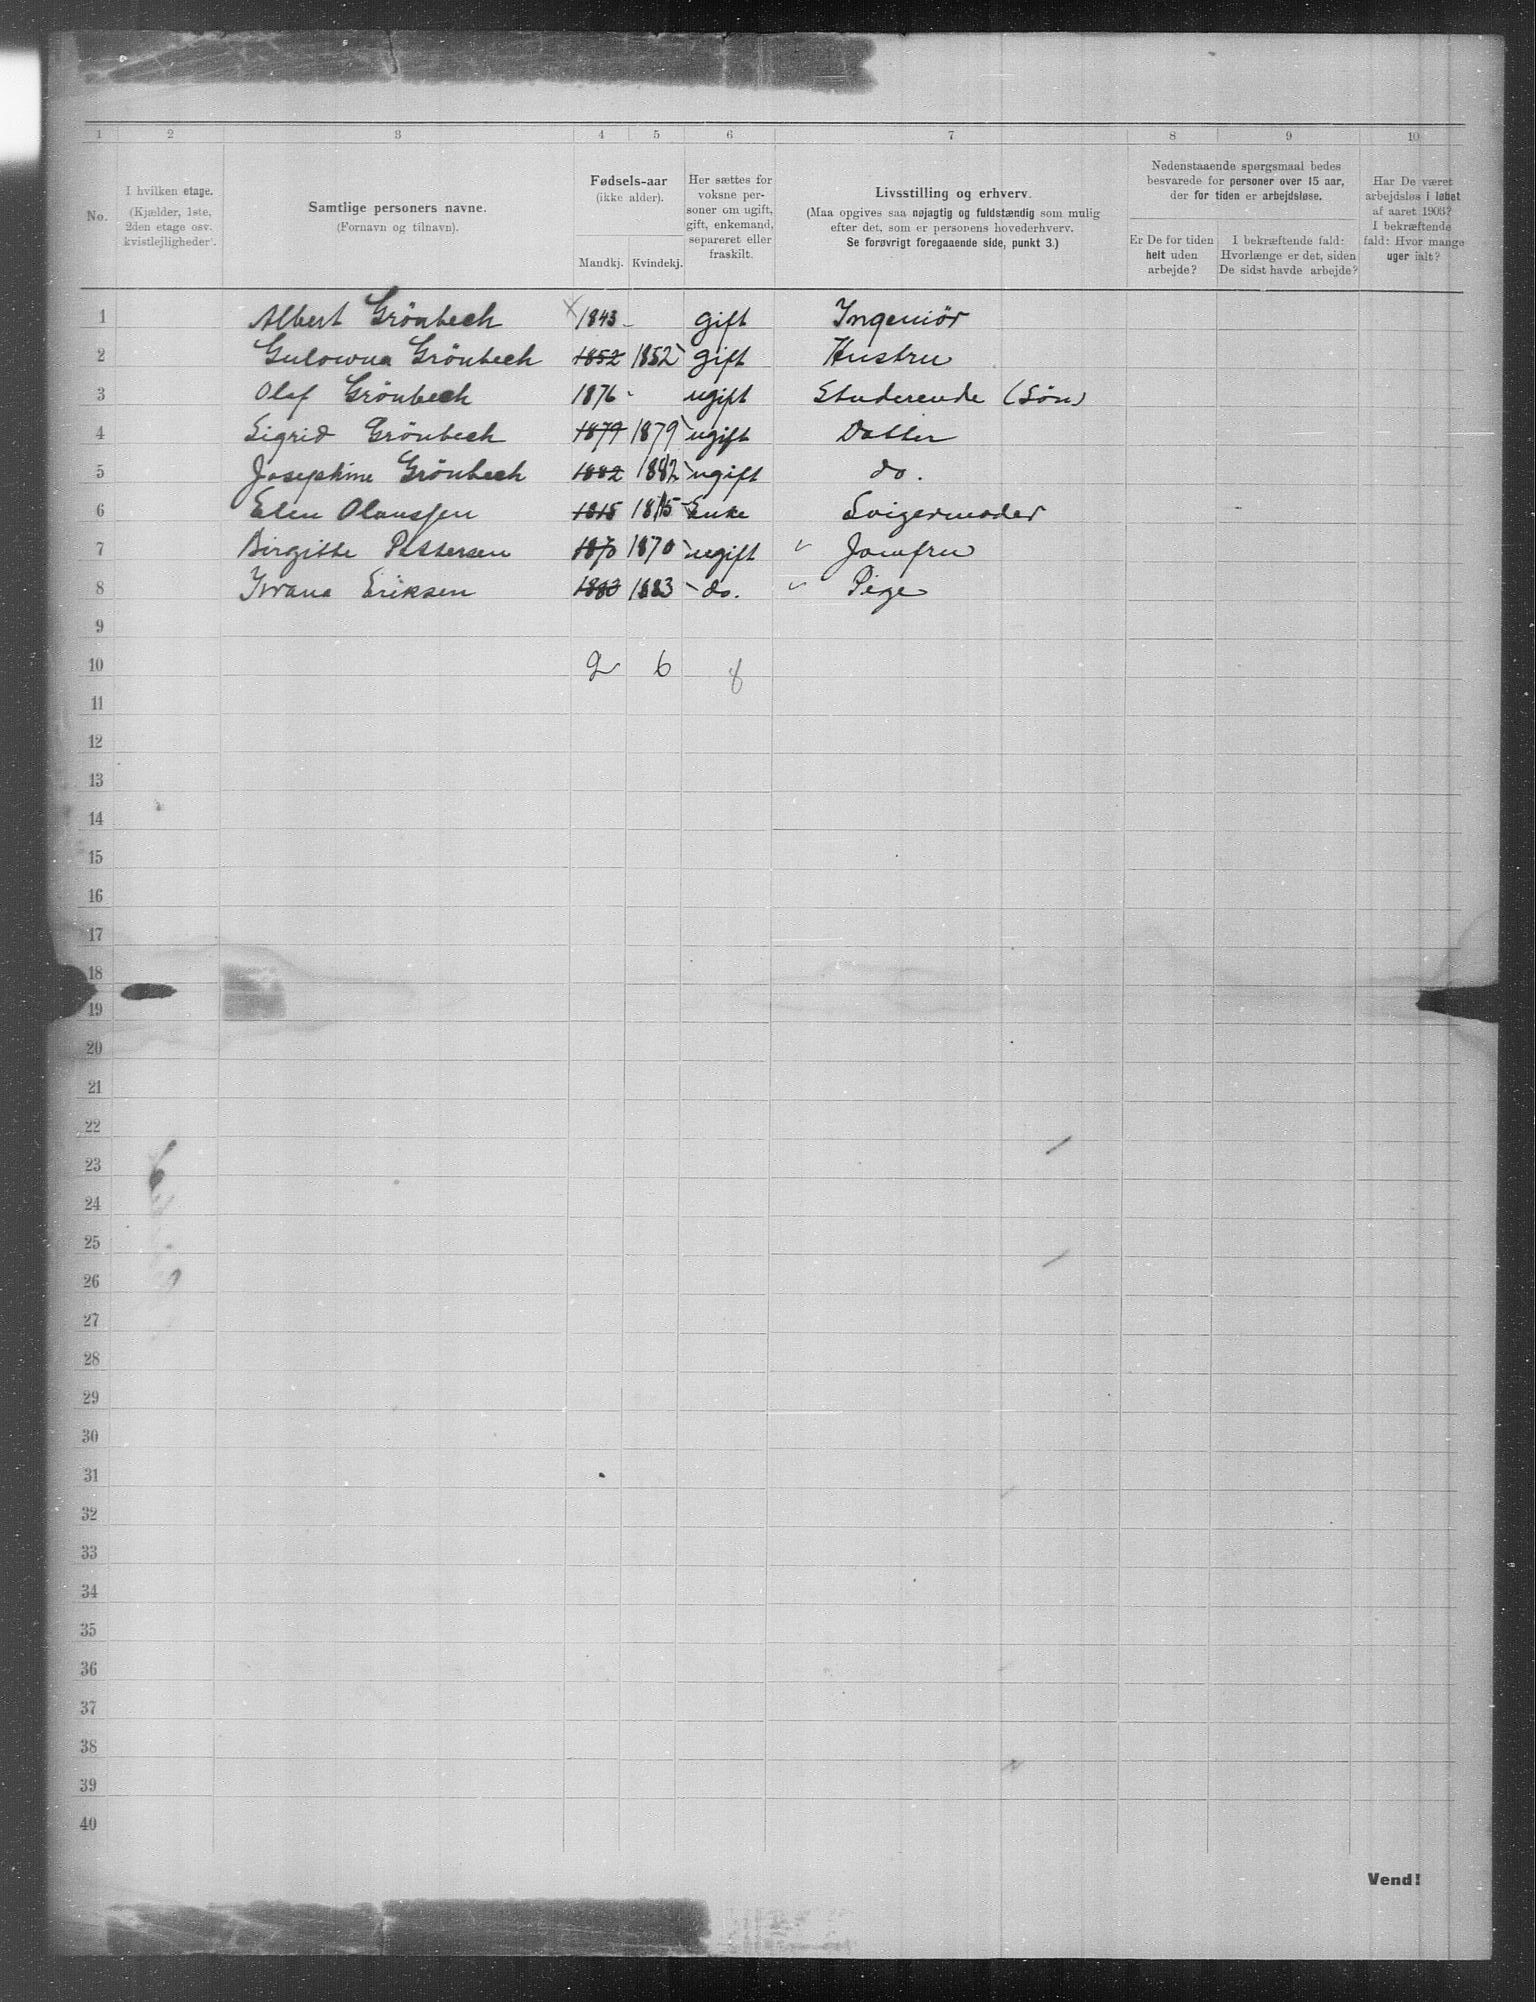 1 2 3 4 5 6 7 8 9 10
No.
I hvilken etage.
(Kjælder, 1ste,
2den etage osv.
kvistlejligheder).
Samtlige personers navne.
(Fornavn og tilnavn).
Fødsels-aar
(ikke alder).
Mandkj. Kvindekj.
Her sættes for
voksne per-
soner om ugift,
gift, enkemand,
separeret eller
fraskilt.
Livsstilling og erhverv.
(Maa opgives saa nøjagtig og fuldstændig som mulig
efter det, som er personens hovederhverv.
Se forøvrigt foregaaende side, punkt 3.)
Nedenstaaende spørgsmaal bedes
besvarede for personer over 15 aar,
der for tiden er arbejdsløse.
Er De for tiden
helt uden
arbejde?
I bekræftende fald:
Hvorlænge er det, siden
De sidst havde arbejde?
Har De været
arbejdsløs i løbet
af aaret 1903?
I bekræftende
fald: Hvor mange
uger ialt?
1 Albert Grönbech 1843 gift Ingeniör
2 Grönbech 1852 1852 gift Hustru
3 Olaf Grönbech 1876 ugift Studerende (Sön)
4 Sigrid Grönbech 1879 1879 ugift Datter
5 Josephine Grönbech 1882 1882 ugift do.
6 Elen Olaussen 1815 1815 Enke Svigermoder
7 Birgitte Pettersen 1870 1870 ugift Jomfru
8 Eriksen 1883 1883 do. Pige
9
10 2 6 8
11
12
13
14
15
16
17
18
19
20
21
22
23
24
25
26
27
28
29
30
31
32
33
34
35
36
37
38
39
40
Vend!